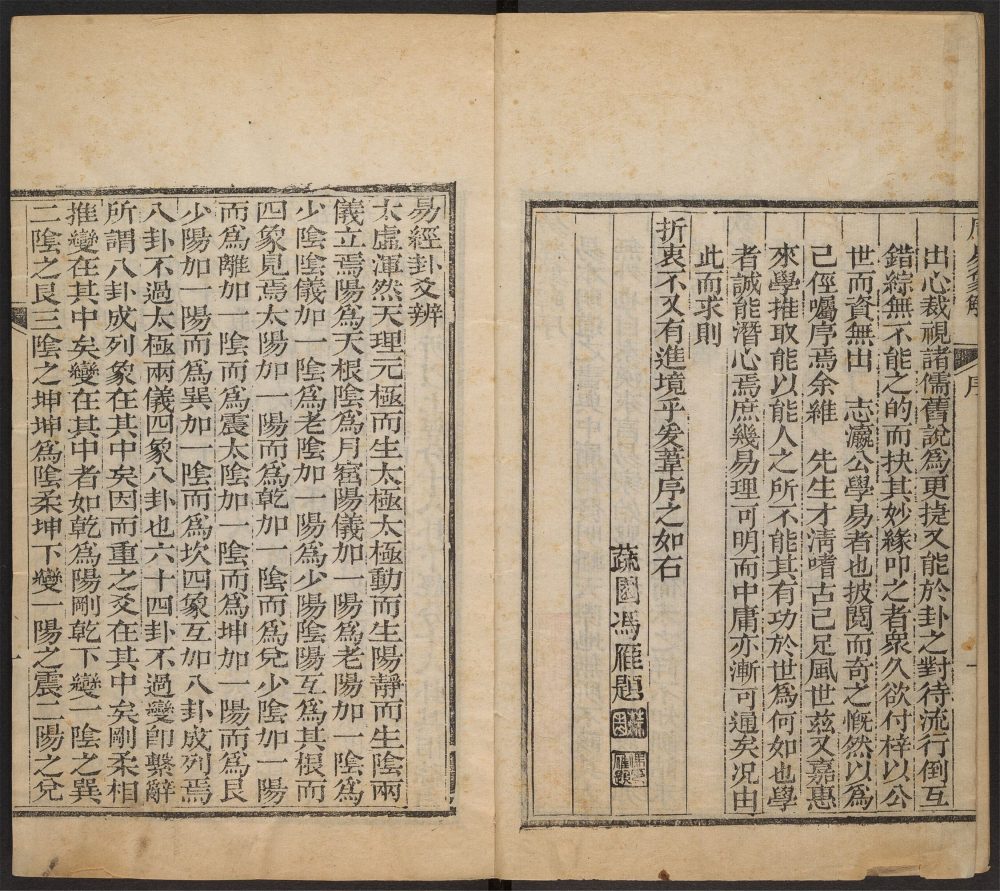 出心裁視諸儒舊說為更捷又能於卦之對待流行倒互
錯綜無不能之的而抉其妙緣叩之者衆久欲付梓以公
世而資無出　志瀛公學易者也披閱而奇之慨然以為
己任囑序焉余維　先生才清嗜古已足風世茲又嘉惠
來學推取能以能人之所不能其有功於世為何如也學
者誠能潛心焉庶幾易理可明而中庸亦漸可通矣况由
此而求則
折衷不又有進境乎爰葦序之如右
蔬園馮雁題
序
一
易經卦爻辨
太虛渾然天理元極而生太極太極動而生陽靜而生陰兩
儀立焉陽為天根陰為月窟陽儀加一陽為老陽加一陰為
少陰陰儀加一陰為老陰加一陽為少陽陰陽互為其根而
四象見焉太陽加一陽而為乾加一陰而為兌少陰加一陽
而為離加一陰而為震太陰加一陰而為坤加一陽而為艮
少陽加一陽而為巽加一陰而為坎四象互加八卦成列焉
八卦不過太極兩儀四象八卦也六十四卦不過變卽繫辭
所謂八卦成列象在其中矣因而重之爻在其中矣剛柔相
推變在其中矣變在其中者如乾為陽剛乾下變一陰之巽
二陰之艮三陰之坤坤為陰柔坤下變一陽之震二陽之兌